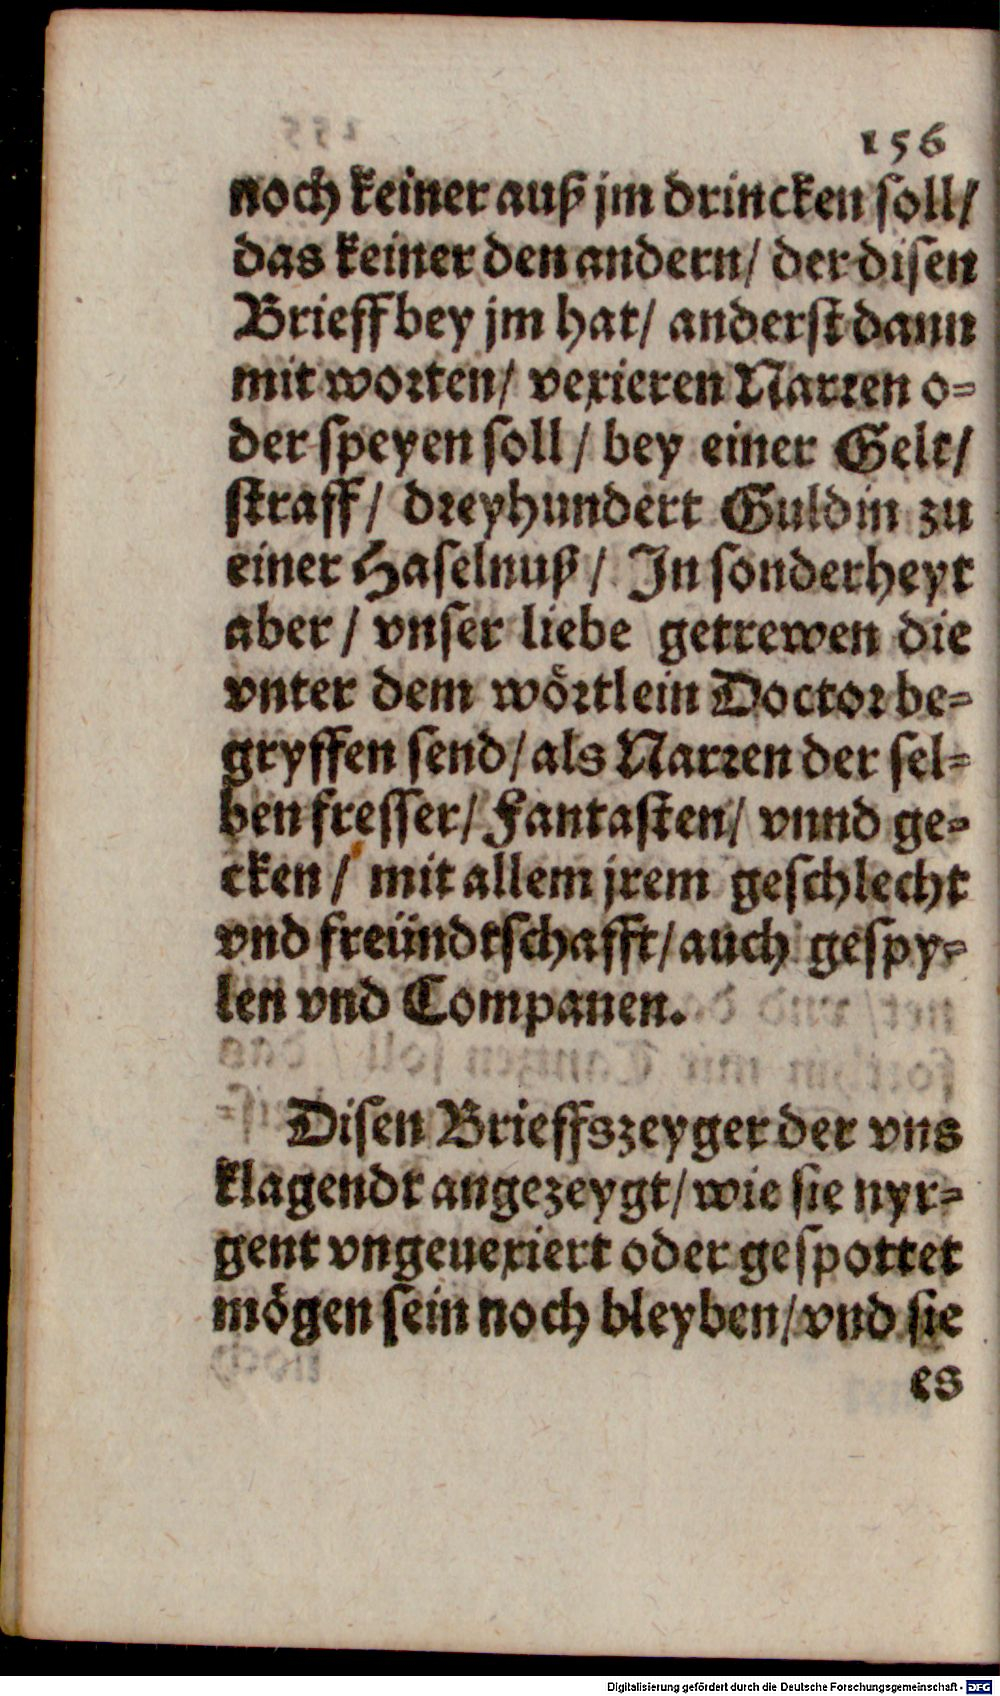 156
noch keiner auß jm drincken soll/
das keiner den andern/ der disen
Brieff bey jm hat/ anderst dann
mit worten/ vexieren Narren o=
der speyen soll/ bey einer Gelt/
straff/ dreyhundert Guldin zu
einer Haselnuß/ In sonderheyt
aber/ vnser liebe getrewen die
vnter dem wörtlein Doctor be=
gryffen send/ als Narren der sel=
ben fresser/ Fantasten/ vnnd ge=
cken/ mit allem jrem geschlecht
vnd freündtschafft/ auch gespy=
len vnd Companen.
Disen Brieffszeyger der vns
klagendt angezeygt/ wie sie nyr=
gent vngeuexiert oder gespottet
mögen sein noch bleyben/ vnd sie
es
Digitalisierung gefördert durch die Deutsche Forschungsgemeinschaft - DFG